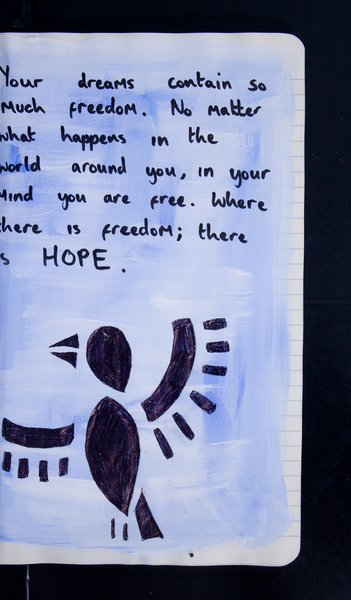 Your dreams contain so
Much freedom. No matter
what happens in the
world around you, in your
Mind you are free. Where
there is freedom; there
is HOPE.